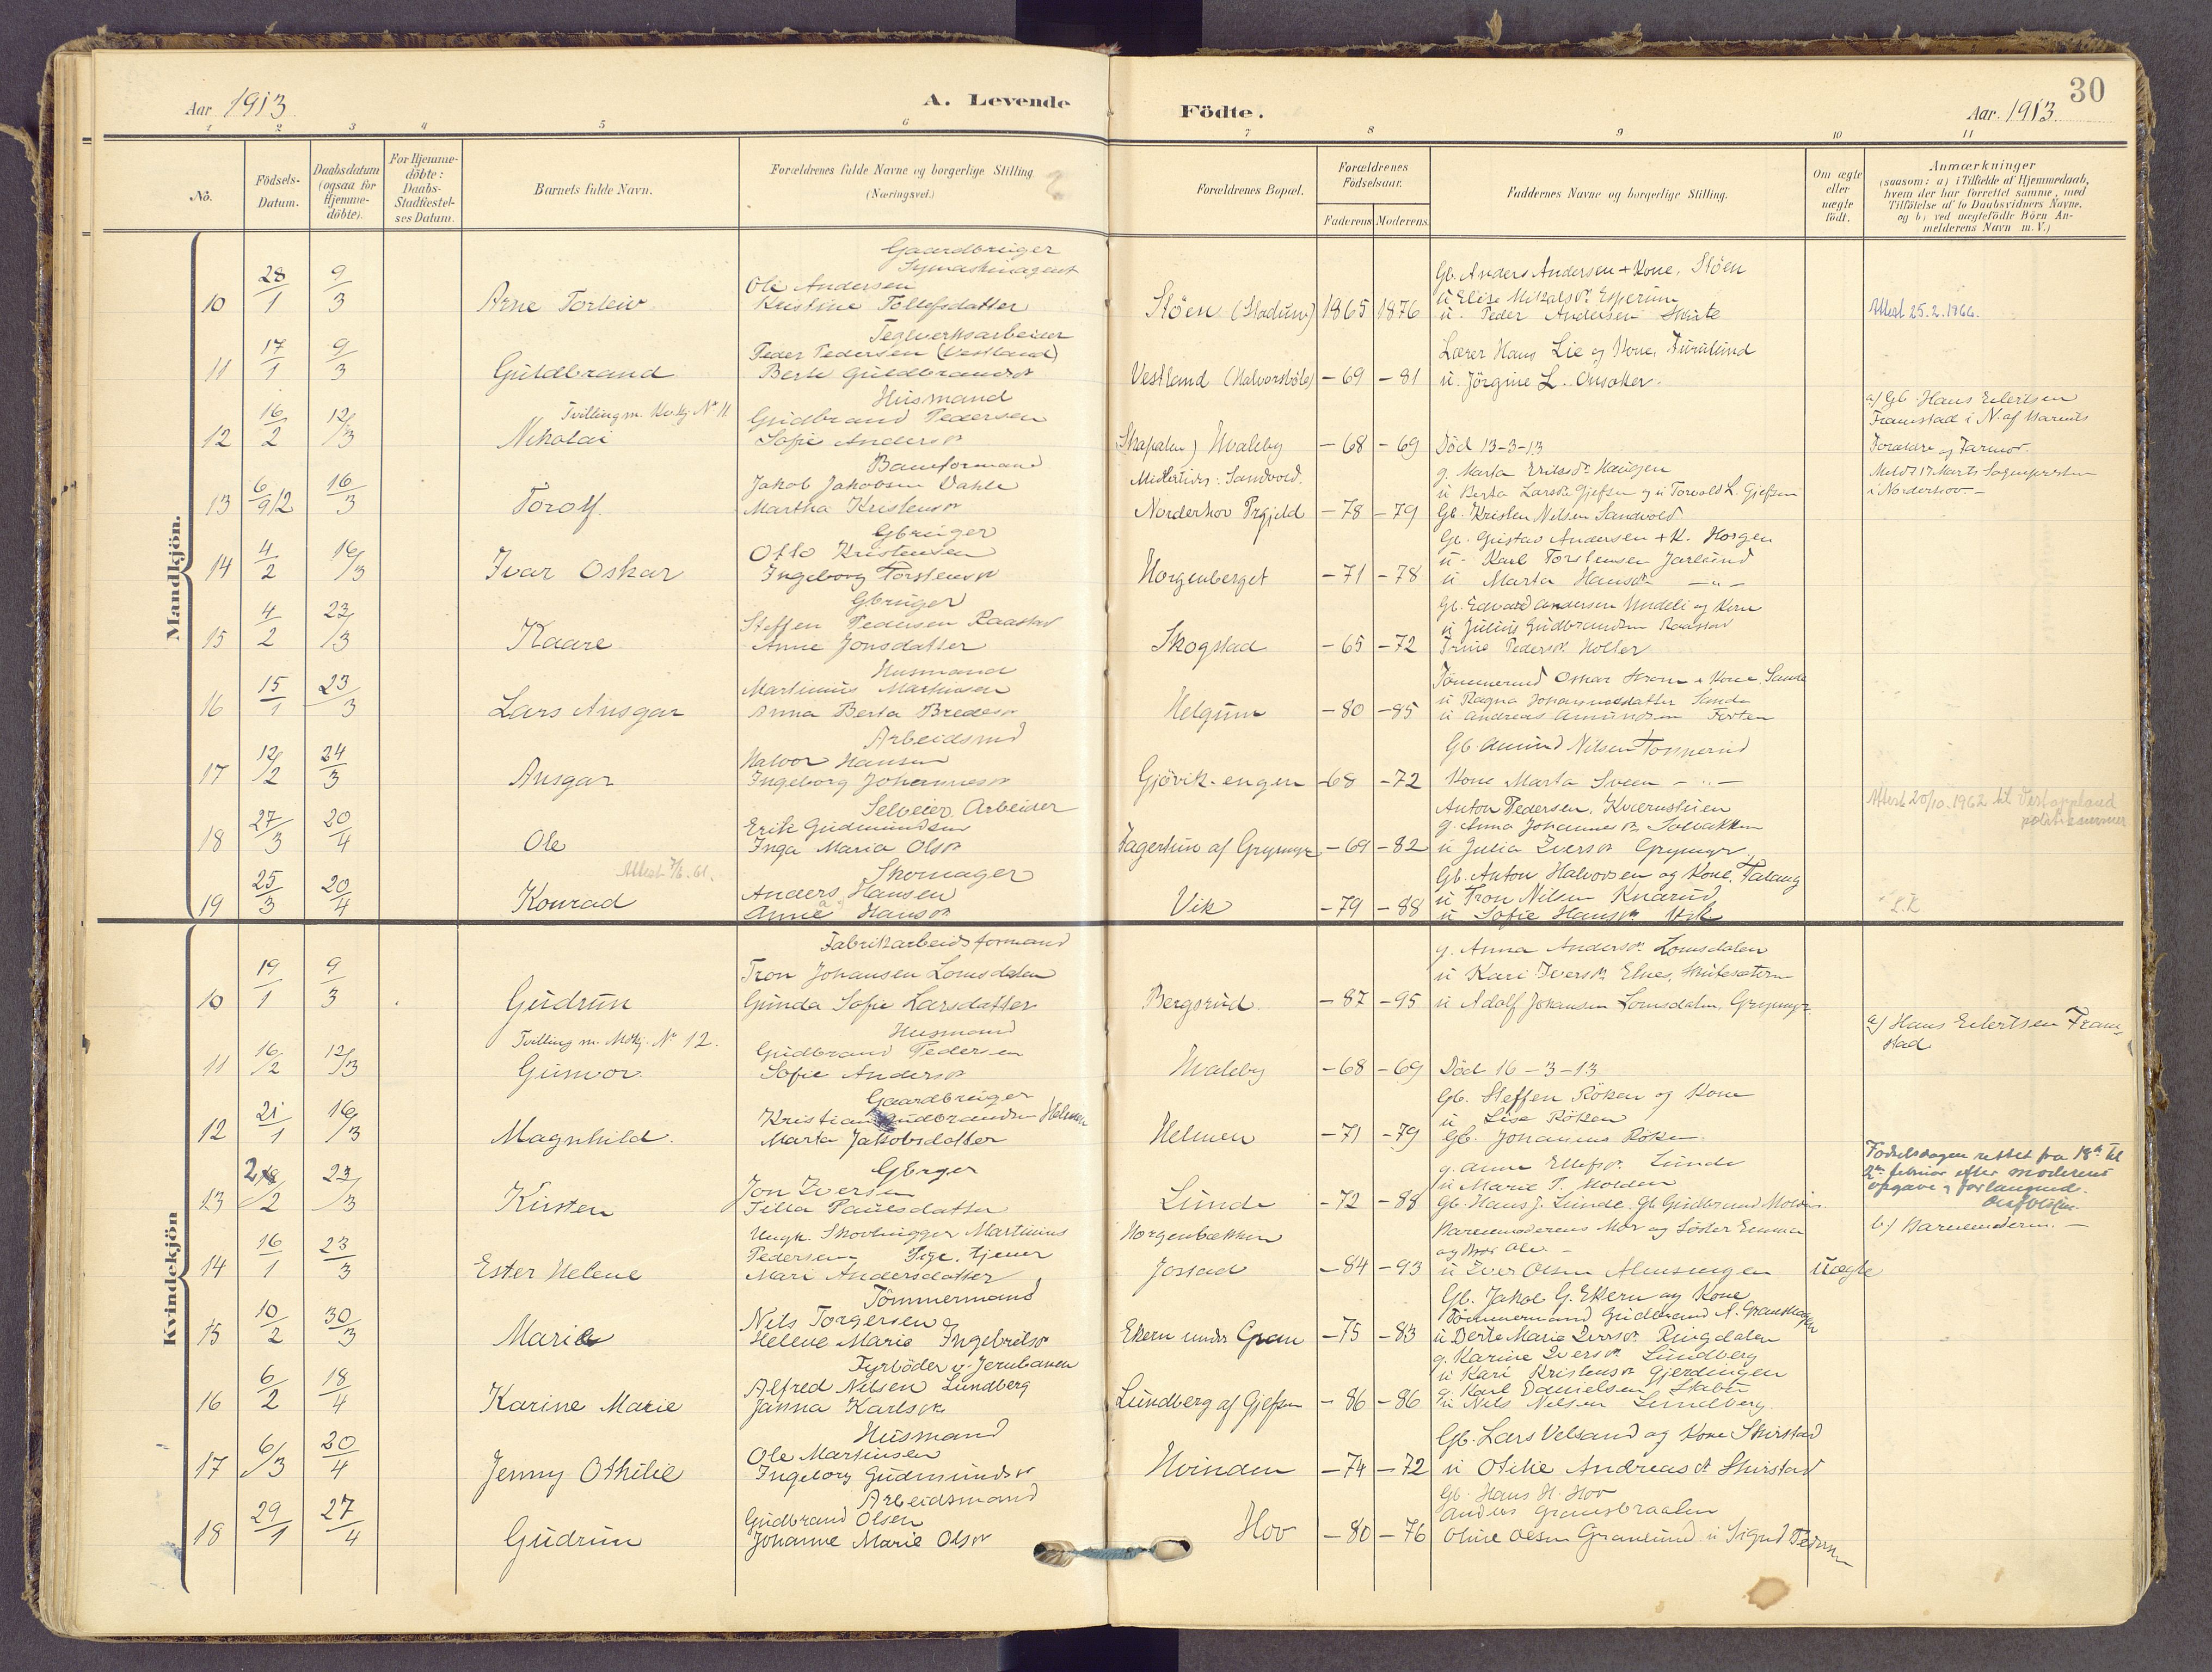 Aar 1913
A. Levende
Födte.
Aar 1913
30
1 2 3 4 5 6 7 8 9 10 11
No.
Födsels-
Datum.
Daabsdatum
(ogsaa for
Hjemme-
döbte).
For Hjemme-
döbte:
Daabs-
Stadfæstel-
ses Datum.
Barnets fulde Navn.
Forældrenes fulde Navne og borgerlige Stilling
(Næringsvei.)
Forældrenes Bopæl.
Forældrenes
Födselsaar.
Faderens Moderens
Faddernes Navne og borgerlige Stilling.
Om ægte
eller
uægte
födt.
Anmærkninger
(saasom: a) i Tilfælde af Hjemmedaab,
hvem der har forrettet samme, med
Tilföielse af to Daabsvidners Navne.
og b) ved uægtefödte Börn An-
melderens Navn m.V.)
Mandkjön.
10 28/1 9/3 Arne Torleiv
Gaardbruger
Symaskinagent
Ole Andersen
Kristine Tollefsdatter
Stöen (Stadum) 1865 1876
Gb. Anders Andersen + Kone, Stöen
u. Peder Andersen
Attest 25.2.1966.
11 17/1 9/3 Guldbrand
Teglverksarbeider
Peder Pedersen (Vestland)
Berte Guldbrandsdr
Vestland (Halvorsböle) -69 -81
Lærer Hans Lie og Kone, Furulund
u. Jörgine L. Onsaker.
12 16/2 12/3 Nikolai
Tvilling m. Kv.kj. No 11
Husmand
Gudbrand Pedersen
Sofie Andersdr
Hvaleby -68 -69
Död 13-3-13
a) Gb. Hans Eilertsen
Framstad i N. af Barnets
Forældre og Farmor.
Meldt 17 Marts Sognepresten
i Norderhov.-
13 6/9 12 16/3 Torolf
Baneformand
Jakob Jakobsen Dahle
Martha Kristensdr
Midlertidig: Sandvold.
Norderhov Prgjeld -78 -79
g. Marta Eriksdr. Haugen
u Berta Larsdr. Gjefsen og u Torvald L. Gjefsen
Gb. Kristen Nilsen Sandvold
14 4/2 16/3 Ivar Oskar
Gbruger
Otto Kristensen
Ingeborg Torstensdr
Horgenberget -71 -78
Gb. Gustav Andersen + K. Horgen
u. Karl Torstensen Jarlund
u Marta Hansdr —"—
15 4/2 23/3 Kaare
Gbruger
Steffen Pedersen Raastad
Anne Jonsdatter
Skogstad -65 -72
Gb. Edvard Andersen Undeli og Kone
u Julius Gudbrandsen Raastad
Trine Pedersdr. Holter
16 15/1 23/3 Lars Ansgar
Husmand
Martinius Mathisen
Anna Berta Bredesdr
Helgum -80 -85
Tömmermd Oskar Strøm + Kone, Sande
u Ragna Johannesdatter Sande
u Andreas Amundsen
17 12/2 24/3 Ansgar
Arbeidsmd
Halvor Hansen
Ingeborg Johannesdr
Gjövik-engen -68 -72
Gb Amund Nilsen Tomperud
Kone Marta Sveen — " —
18 27/3 20/4 Ole
Selveier Arbeider
Erik Gudmundsen
Inga Maria Olsdr
Fagertun af Grymyr -69 -82
Anton Pedersen, Kvernstuen
g. Anna Johannesdr. Solbakken
u Julia Iversdr Grymyr
Attest 20/10.1962 til Vestoppland
politikammer
19 25/3 20/4 Konrad
Skomager
Anders Hansen
Anne Hansdr
Vik -79 -88
Gb. Anton Halvorsen og Kone, Falang
u Tron Nilsen Knarud
u Sofie Hansdr Vik
Kvindekjön
10 19/1 9/3 Gudrun
Fabrikarbeidsformand
Tron Johansen Lomsdalen
Gunda Sofie Larsdatter
Bergsrud -87 -95
g. Anna Andersdr. Lomsdalen
u Kari Iversdr. Elnes,
u Adolf Johansen Lomsdalen, Grymyr
11 16/2 12/3 Gunvor
Tvilling m. Mdkj. No 12.
Husmand
Gudbrand Pedersen
Sofie Andersdr
Hvaleby -68 -69
Död 16-3-13
a) Hans Eilertsen Fram-
stad
12 21/1 16/3 Magnhild.
Gaardbruger
Kristian Gudbrandsen Helmen
Marta Jakobsdatter
Helmen -71 -79
Gb. Steffen Röken og Kone
u Lise Röken
Gb. Johannes Röken
13 2/2 23/3 Kirsten
Gbrger
Jon Iversen
Tilla Paulsdatter
Lunde -72 -88
g. Anne Ellefsdr. Lunde
u Marie T. Molden
Gb. Hans J. Lunde. Gb Gudbrand Molden.
Fødselsdagen rettet fra 18de til
2den februar efter moderens
opgave og forlangende.
14 16/1 23/3 Ester Helene
Ungk. Skovhugger Martinius
Pedersen Pige, tjener
Mari Andersdatter
Horgenbakken
Josstad -84 -93
Barnemoderens Mor og Söster Emma
og Bror Ole -
u Iver Olsen
Uægte
b) Barnemoderen. —
15 10/2 30/3 Marie
Tömmermand
Nils Torgersen
Helene Marie Ingebretsdr
Ekern under Gran -75 -83
Gb. Jakob G. Ekern og Kone
Tömmermand Gudbrand A. Granskogen
u Berte Marie Iversdr. Ringdalen
16 6/2 18/4 Karine Marie
Fyrböder v. Jernbanen
Alfred Nilsen Lundberg
Janna Karlsdr.
Lundberg af Gjefsen -86 -86
g. Karine Iversdr. Lundberg
u Kari Kristensdr Gjerdingen
g. Karl Danielsen
u Nils Nilsen Lundberg.
17 6/3 20/4 Jenny Othilie
Husmand
Ole Martinsen
Ingeborg Gudmundsdr
Hvinden -74 -72
Gb. Lars Velsand og Kone Skirstad
u Otilie Andreasdr Skirstad
18 29/1 27/4 Gudrun
Arbeidsmand
Gudbrand Olsen
Johanne Marie Olsdr
Hov -80 -76
Gb. Hans H. Hov
Anders Gransbraaten
Oline Olsen Granlund u Sigrid Pedersen